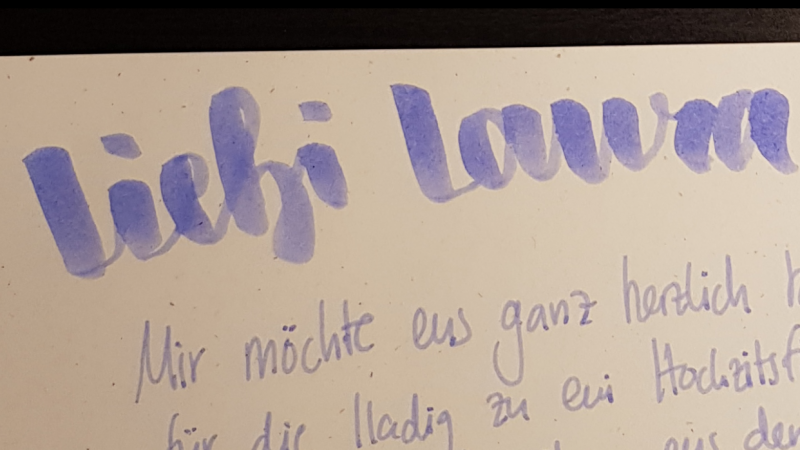 Liebi Laura
Mir möchte eus ganz herzlich
für die Iladig zu eui Hochzitsf
aus der